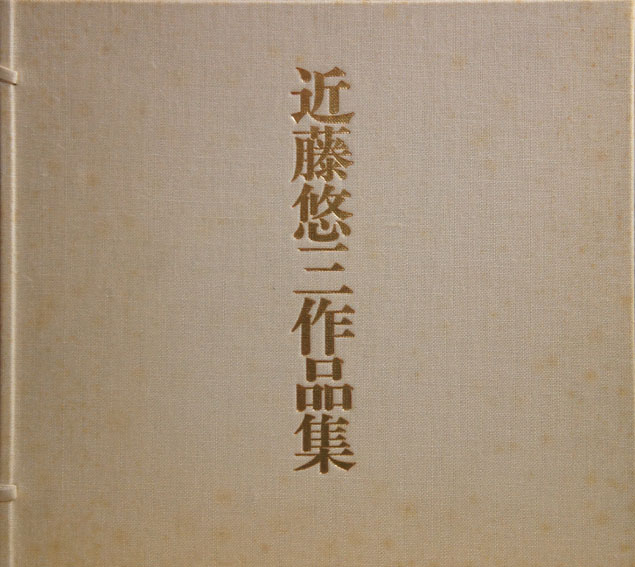 近藤悠三作品集